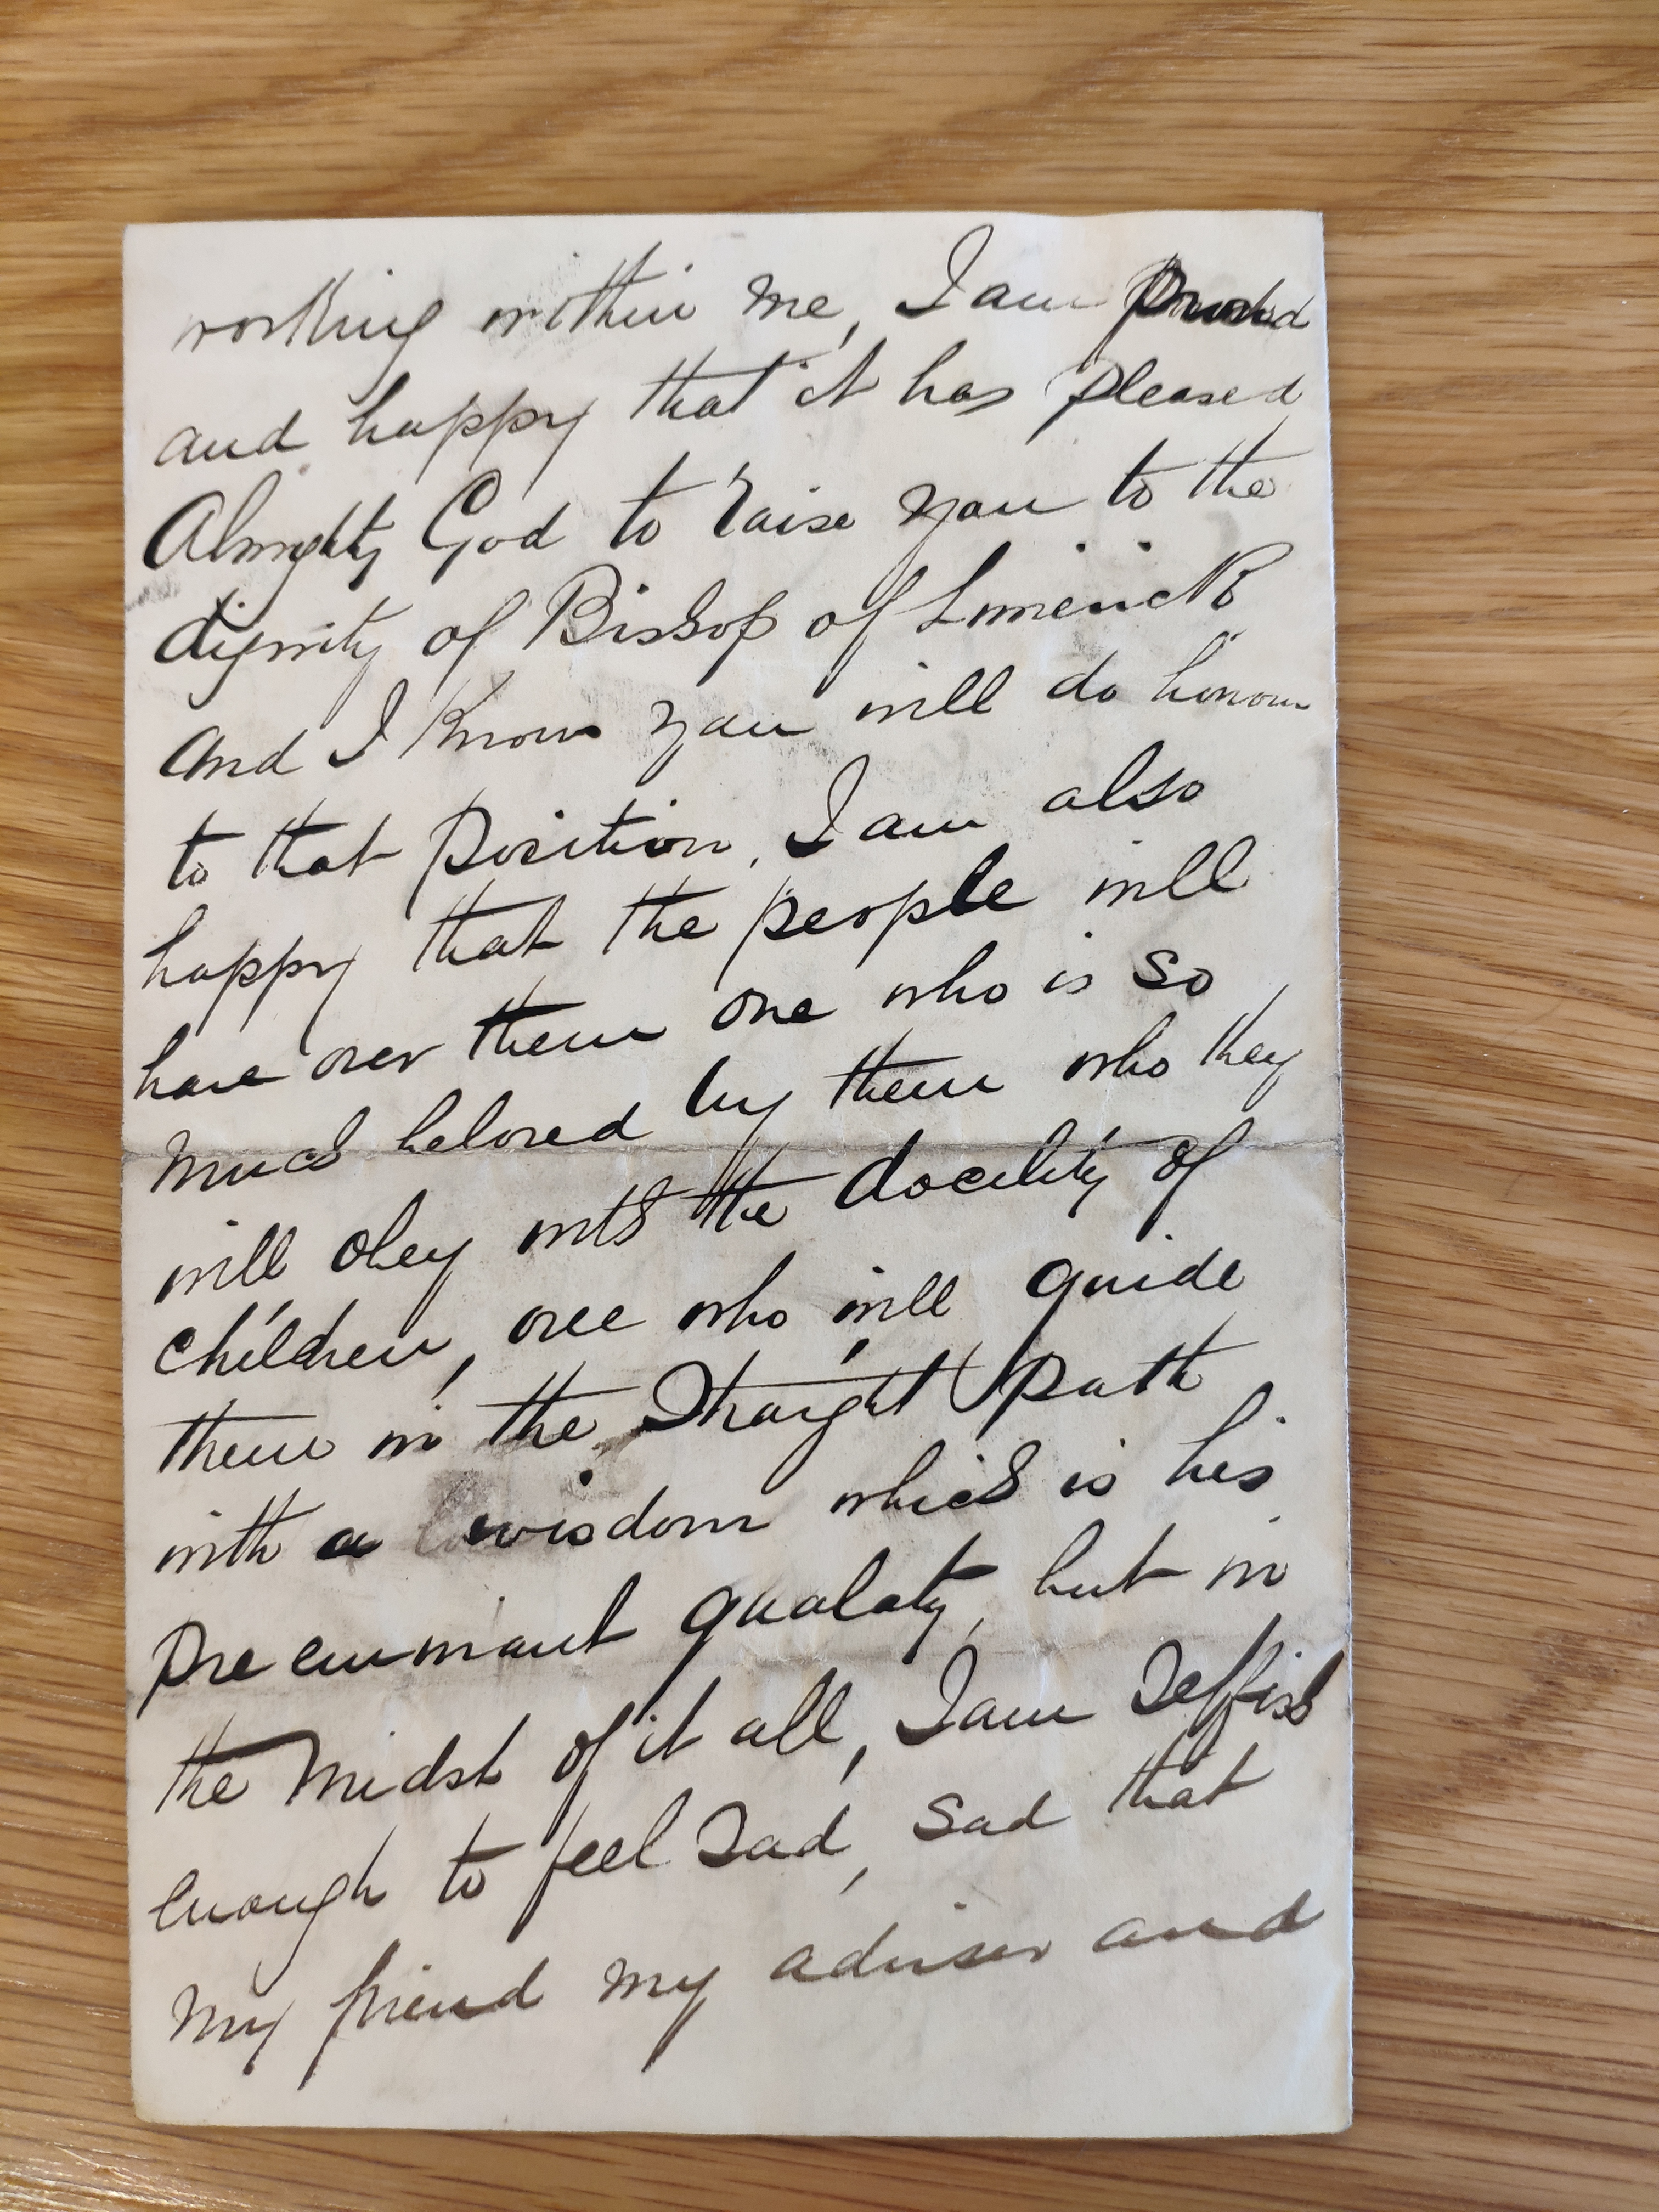 working within me, I am proud
and happy that it has pleased
Almighty God to raise you to the
dignity of Bishop of Limerick
and I know you will do honour
to that position, I am also
happy that the people will
have over them one who is so
much beloved by them who they
will obey with the docility of
children, one who will guide
them in the straight path
with a wisdom which is his
pre eminant qualaty, but in
the midst of it all, I am selfish
enough to feel sad, sad that
my friend my adviser and